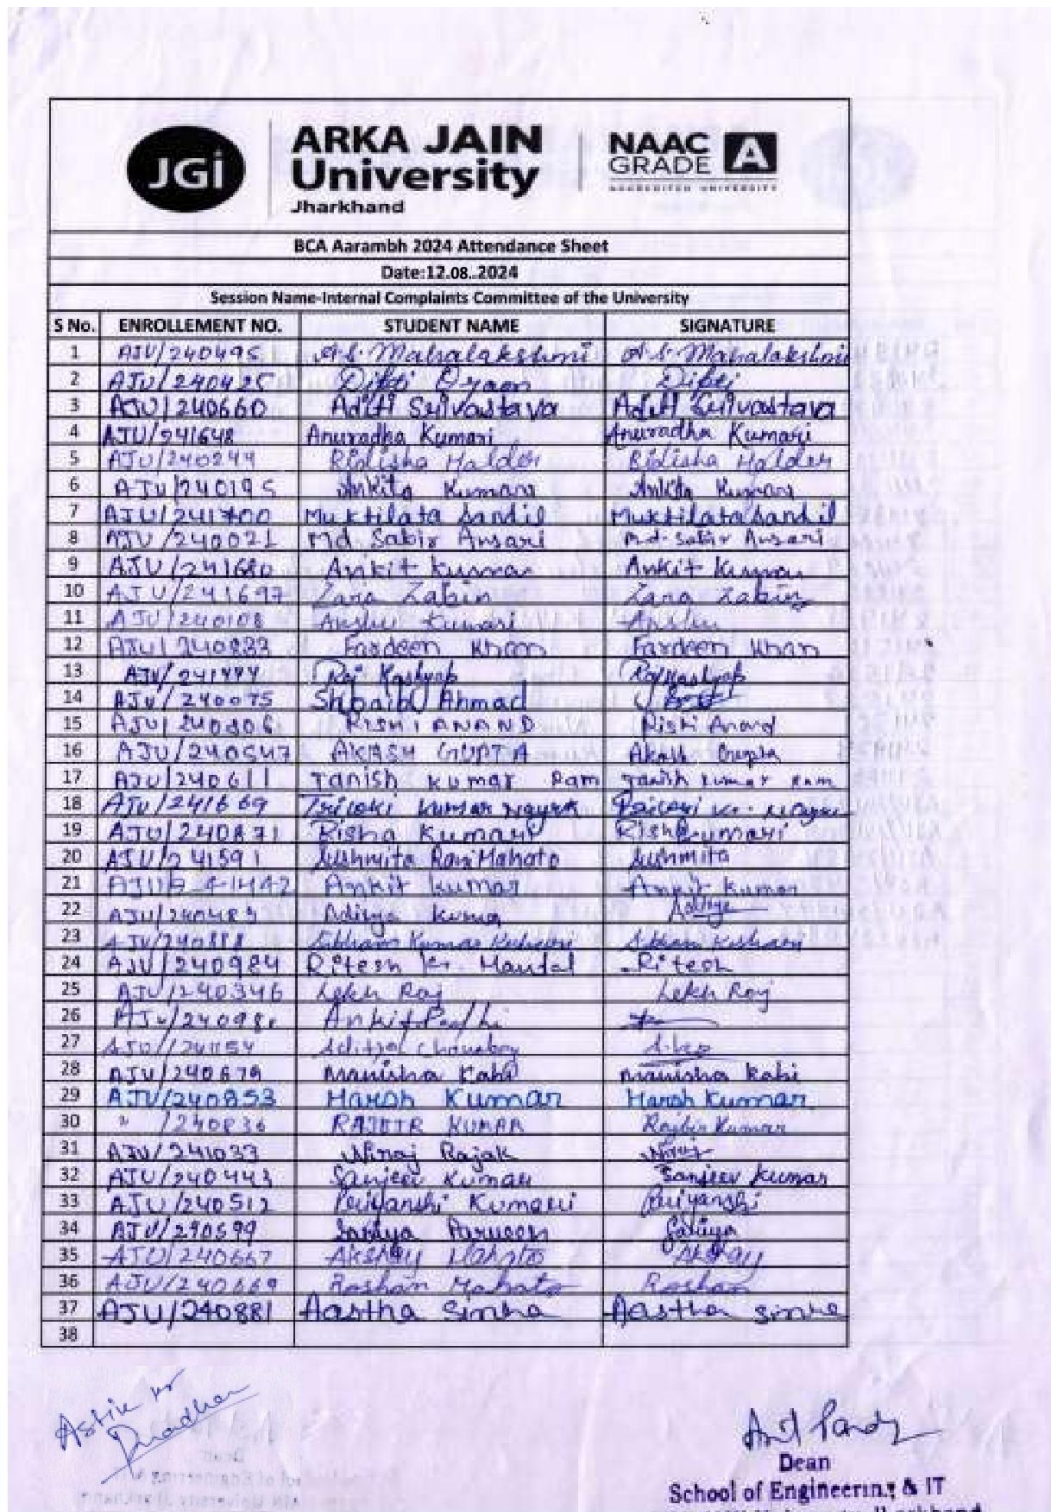 JGi
ARKA JAIN
University
Jharkhand
NAAC
GRADE A
ACCREDITED UNIVERSITY
BCA Aarambh 2024 Attendance Sheet
Date:12.08..2024
Session Name-Internal Complaints Committee of the University
S No. ENROLLEMENT NO. STUDENT NAME SIGNATURE
1 AJU/240495 A.S. Mahalakshmi A.S. Mahalakshmi
2 AJU/240425 Dipti Oraon Dipti
3 AJU/240660 Aditi Srivastava Aditi Srivastava
4 AJU/241648 Anuradha Kumari Anuradha Kumari
5 AJU/240244 Ridisha Halder Ridisha Halder
6 AJU/240195 Ankita Kumari Ankita Kumari
7 AJU/241700 Muktilata Sandil Muktilata Sandil
8 AJU/240021 Md Sabir Ansari Md. Sabir Ansari
9 AJU/241680 Ankit Kumar Ankit Kumar
10 AJU/241697 Zara Zabin Zara Zabin
11 AJU/240108 Anshu Kumari Anshu
12 AJU/240833 Fardeen Khan Fardeen Khan
13 AJU/241474 Raj Kashyap Raj Kashyap
14 AJU/240075 Shoaib Ahmad
15 AJU/240806 RISHI ANAND Rishi Anand
16 AJU/240547 AKASH GUPTA Akash Gupta
17 AJU/240611 Tanish Kumar Ram Tanish Kumar Ram
18 AJU/241669 Triloki Kumar Nayak
19 AJU/240871 Risha Kumari Risha Kumari
20 AJU/241591 Sushmita Rani Mahato Sushmita
21 AJU/241442 Ankit Kumar Ankit Kumar
22 AJU/240483 Aditya Kumar Aditya
23 AJU/240888 Kumar
24 AJU/240984 Ritesh Kr. Mandal Ritesh
25 AJU/240346 Lekh Raj Lekh Raj
26 Ankit
27 Choubey
28 AJU/240679 Manisha Kahi Manisha Kahi
29 AJU/240853 Harsh Kumar Harsh Kumar
30 " /240836 RAJBIR KUMAR Rajbir Kumar
31 AJU/241037 Niraj Rajak Niraj
32 AJU/240443 Sanjeev Kumar Sanjeev Kumar
33 AJU/240512 Priyanshi Kumari Priyanshi
34 AJU/240599 Parween
35 AJU/240667 Akshay Mahato Akshay
36 AJU/240669 Roshan Mahato Roshan
37 AJU/240881 Aastha Sinha Aastha Sinha
38
Astik Kr
Pradhan
Dean
School of Engineering & IT